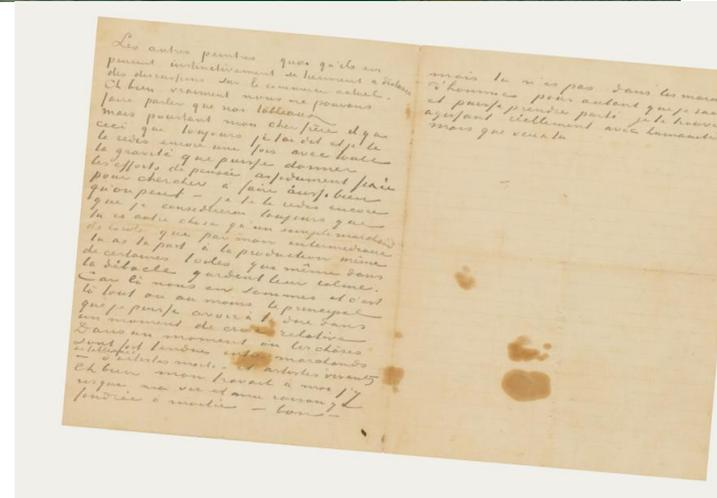 Les autres peintres quoi qu'ils en
pensent instinctivement se tiennent à distance
des discussions sur le commerce actuel.
Eh bien vraiment nous ne pouvons
faire parler que nos tableaux
mais pourtant mon cher frère il y a
ceci que toujours je t'ai dit et je te
le redis encore une fois avec toute
la gravité que puisse donner
les efforts de pensée assidument fixée
pour chercher à faire aussi bien
qu'on peut – je te le redis encore
que je considérerai toujours que
tu es autre chose qu'un simple marchand
de Corots que par mon intermédiaire
tu as ta part à la production même
de certaines toiles qui même dans
la débâcle gardent leur calme.
Car là nous en sommes et c'est
là tout ou au moins le principal
que je puisse avoir à te dire dans
un moment de crise relative
Dans un moment où les choses
sont fort tendues entre marchands
de tableaux
– d'artistes morts – et artistes vivants
Eh bien mon travail à moi j'y
risque ma vie et ma raison y a
fondrée à moitié – bon –
mais tu n'es pas dans les
d'hommes pour autant que je
et puisse prendre parti je le trouve
agissant réellement avec humanité
mais que veux tu